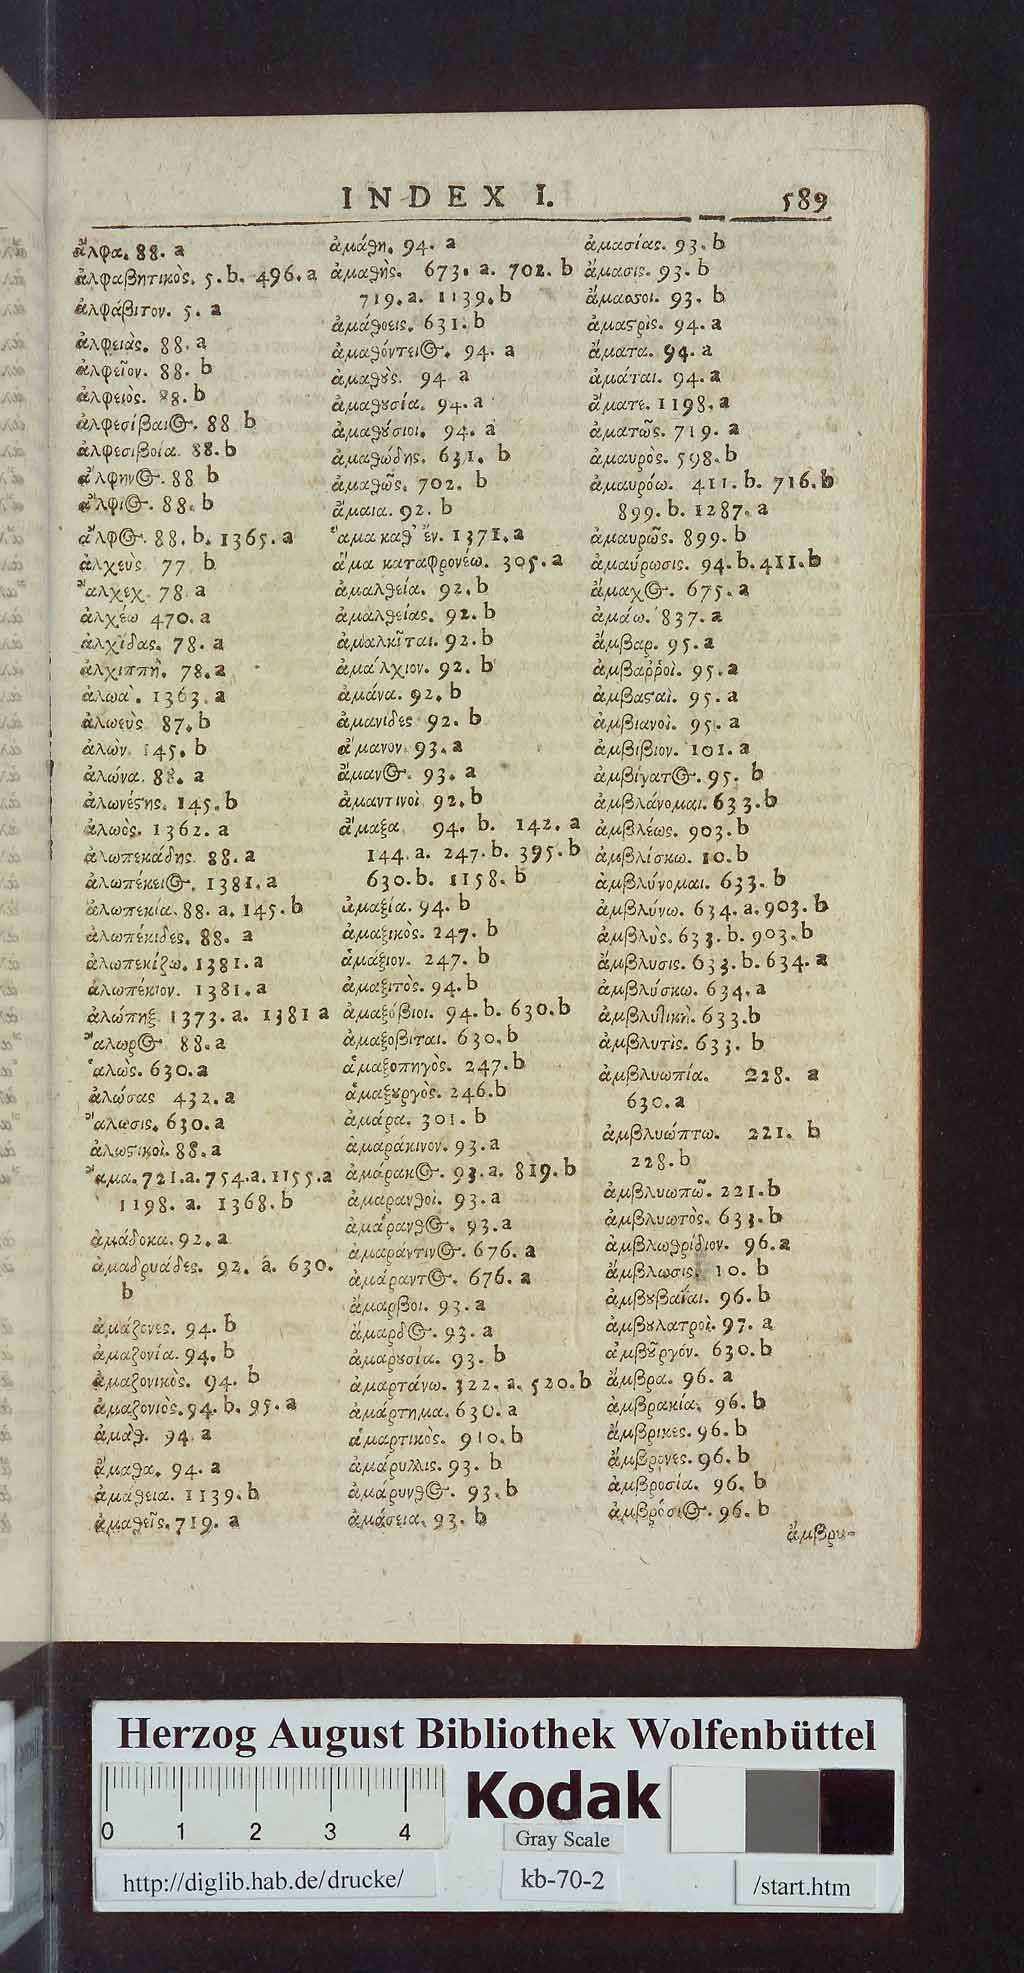 INDEX I. 589
ἄλφα. 88. a
ἀλφαβητικὸς. 5. b. 496. a
ἀλφάβιτον. 5. a
ἀλφειὰς. 88. a
ἀλφεῖον. 88. b
ἀλφειὸς. 88. b
ἀλφεσίβαιος. 88 b
ἀλφεσιβοία. 88. b
ἄλφηνος. 88 b
ἄλφιος. 88. b
ἄλφος. 88. b. 1365. a
ἀλχεὺς 77 b
ἄλχεχ. 78 a
ἀλχέω 470. a
ἀλχίδας. 78. a
ἀλχιππὴ. 78. a
ἀλωὰ. 1363. a
ἀλωεὺς 87. b
ἀλὼν 145. b
ἀλώνα. 88. a
ἀλωνέϛης. 145. b
ἀλωὸς. 1362. a
ἀλωπεκάδης 88. a
ἀλωπέκειος. 1381. a
ἀλωπεκία. 88. a. 145. b
ἀλωπέκιδες. 88. a
ἀλωπεκίζω. 1381. a
ἀλωπέκιον. 1381. a
ἀλώπηξ 1373. a. 1381 a
ἄλωρος 88. a
ἁλὼς. 630. a
ἀλώσας 432. a
ἄλωσις. 630. a
ἀλωϛικοὶ. 88. a
ἅμα. 721. a. 754. a. 1155. a
1198. a. 1368. b
ἀμάδοκα. 92. a
ἀμαδρυάδες. 92. a. 630.
b
ἀμάζονες. 94. b
ἀμαζονία. 94. b
ἀμαζονικὸς. 94. b
ἀμαζονιὸς. 94. b. 95. a
ἀμὰθ. 94 a
ἄμαθα. 94. a
ἀμάθεια. 1139. b
ἀμαθεῖς. 719. a
ἀμάθη. 94. a
ἀμαθὴς. 673. a. 702. b
719. a. 1139. b
ἀμάθοεις. 631. b
ἀμαθόντειος. 94. a
ἀμαθȣ̀ς. 94 a
ἀμαθȣσία. 94. a
ἀμαθȣ́σιοι. 94. a
ἀμαθώδης. 631. b
ἀμαθῶς. 702. b
ἄμαια. 92. b
ἅμα καθ' ἕν. 1371. a
ἅμα καταφρονέω. 305. a
ἀμαλθεία. 92. b
ἀμαλθείας. 92. b
ἀμαλκῖται. 92. b
ἀμάλχιον. 92. b
ἀμάνα. 92. b
ἀμανίδες 92. b
ἄμανον 93. a
ἄμανος. 93. a
ἀμαντινοὶ 92. b
ἅμαξα 94. b. 142. a
144. a. 247. b. 395. b
630. b. 1158. b
ἁμαξία. 94. b
ἁμαξικὸς. 247. b
ἁμάξιον. 247. b
ἁμαξιτὸς. 94. b
ἁμαξόβιοι. 94. b. 630. b
ἁμαξοβίται. 630. b
ἁμαξοπηγὸς. 247. b
ἁμαξȣργὸς. 246. b
ἀμάρα. 301. b
ἀμαράκινον. 93. a
ἀμάρακος. 93. a. 819. b
ἀμαρανθοὶ. 93. a
ἀμάρανθος. 93. a
ἀμαράντινος. 676. a
ἀμάραντος. 676. a
ἄμαρβοι. 93. a
ἄμαρδος. 93. a
ἀμαρȣσία. 93. b
ἁμαρτάνω. 322. a. 520. b
ἁμάρτημα. 630. a
ἁμαρτικὸς. 910. b
ἀμάρυλλις. 93. b
ἀμάρυνθος. 93. b
ἀμάσεια. 93. b
ἀμασίας. 93. b
ἄμασις. 93. b
ἄμασσοι. 93. b
ἀμαϛρὶς. 94. a
ἄματα. 94. a
ἀμάται. 94. a
ἅματε. 1198. a
ἀματῶς. 719. a
ἀμαυρὸς. 598. b
ἀμαυρόω. 411. b. 716. b
899. b. 1287. a
ἀμαυρῶς. 899. b
ἀμαύρωσις. 94. b. 411. b
ἄμαχος. 675. a
ἀμάω. 837. a
ἄμβαρ. 95. a
ἀμβαῤῥοὶ. 95. a
ἀμβαϛαὶ. 95. a
ἀμβιανοὶ. 95. a
ἀμβιβιον. 101. a
ἀμβίγατος. 95. b
ἀμβλάνομαι. 633. b
ἀμβλέως. 903. b
ἀμβλίσκω. 10. b
ἀμβλύνομαι. 633. b
ἀμβλύνω. 634. a. 903. b
ἀμβλὺς. 633. b. 903. b
ἄμβλυσις. 633. b. 634. a
ἀμβλύσκω. 634. a
ἀμβλυτικὴ. 633. b
ἀμβλυτὶς. 633. b
ἀμβλυωπία. 228. a
630. a
ἀμβλυώπτω. 221. b
228. b
ἀμβλυωπῶ. 221. b
ἀμβλυωτὸς. 633. b
ἀμβλωθρίδιον. 96. a
ἄμβλωσις. 10. b
ἀμβȣβαῖαι. 96. b
ἀμβȣλατροὶ. 97. a
ἀμβȣ͂ργόν. 630. b
ἄμβρα. 96. a
ἀμβρακία. 96. b
ἄμβρικες. 96. b
ἄμβρωνες. 96. b
ἀμβροσία. 96. b
ἀμβρόσιος. 96. b
ἀμβρυ-
Herzog August Bibliothek Wolfenbüttel
0 1 2 3 4
Kodak
Gray Scale
http://diglib.hab.de/drucke/ kb-70-2 /start.htm